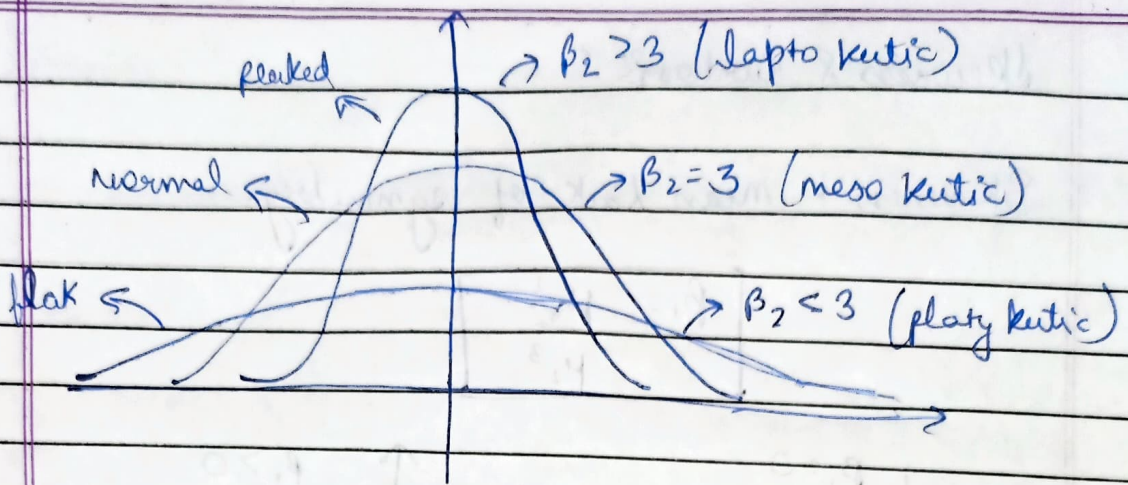 peaked
β₂ > 3 (lapto kutic)
normal
β₂ = 3 (meso kutic)
flak
β₂ < 3 (platy kutic)